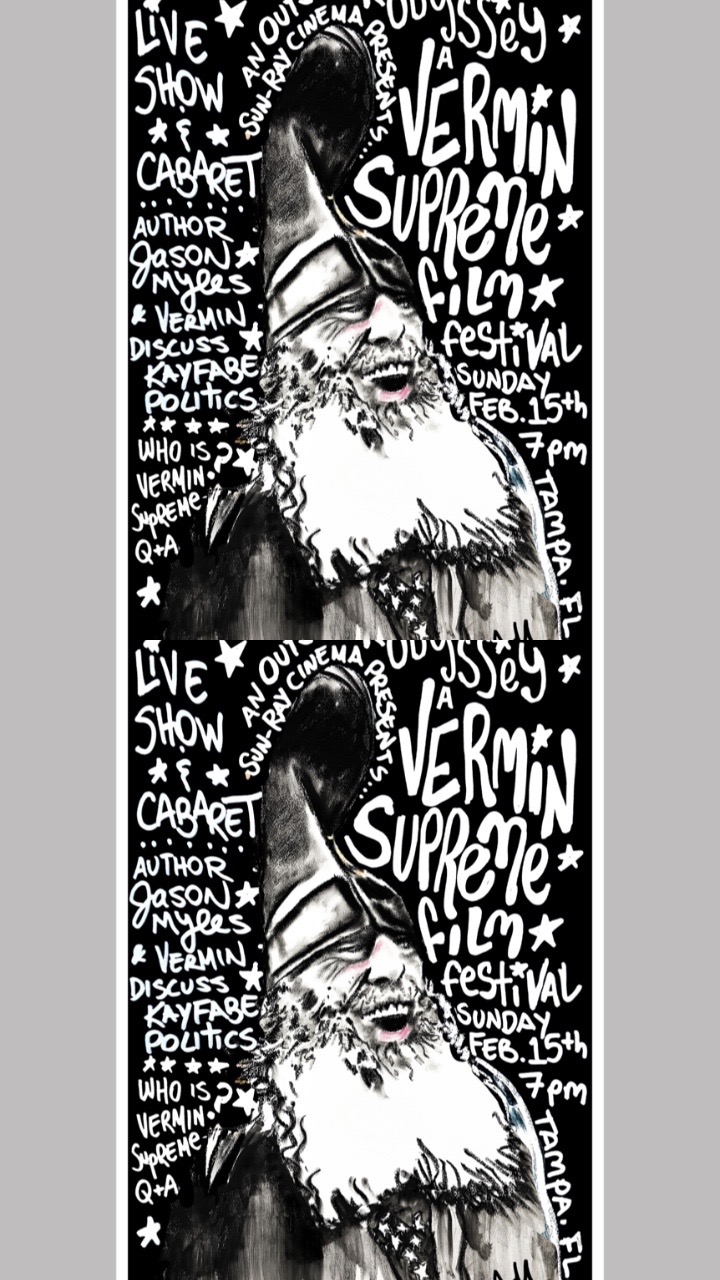 LiVE
SHOW
&
CABARET
AUTHOR
JASON
Myles
& VERMIN
DISCUSS
KAYFABE
POLITICS
WHO IS
VERMIN
SUPREME?
Q+A
AN
SUN-RAY CINEMA PRESENTS...
ODYSSEY
A
VERMiN
SUPReMe
fiLM
festiVAL
SUNDAY
FEB. 15th
7pm
TAMPA, FL
LiVE
SHOW
&
CABARET
AUTHOR
JASON
Myles
& VERMIN
DISCUSS
KAYFABE
POLITICS
WHO IS
VERMIN
SUPREME?
Q+A
AN
SUN-RAY CINEMA PRESENTS...
ODYSSEY
A
VERMiN
SUPReMe
fiLM
festiVAL
SUNDAY
FEB. 15th
7pm
TAMPA, FL